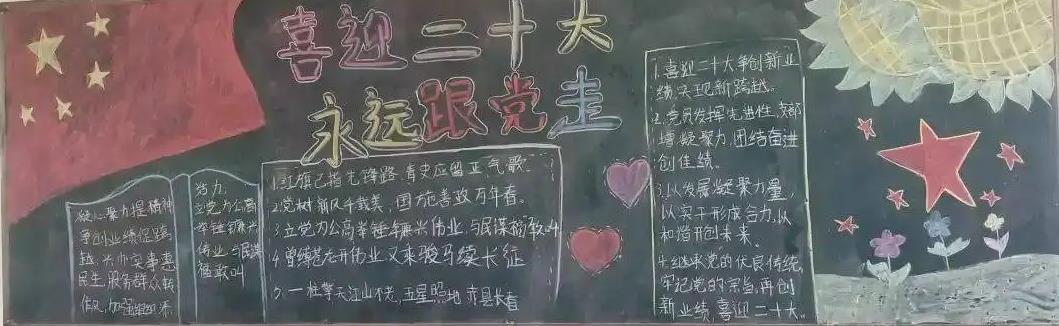 喜迎二十大
永远跟党走
统人聚力提精神
争创业绩促跨
越,兴办实事惠
民生,服务群众转
作风,加强组织添
活力,
立党为公高
举锤镰兴
伟业,与民谋
福敢叫
1.红旗已指先锋路,青史应留正气歌。
2.党树新风千载美,国施善政万年春。
3.立党为公高举锤镰兴伟业,与民谋福敢叫
4.曾缚苍龙开伟业,又来骏马续长征
5.一柱擎天江山不老,五星照地赤县长春
1.喜迎二十大争创新业
绩,实现新跨越。
2.党员发挥先进性,支部
增凝聚力,团结奋进
创佳绩。
3.以发展凝聚力量,
以实干形成合力,以
和谐开创未来。
4.继承党的优良传统,
牢记党的宗旨,再创
新业绩,喜迎二十大。